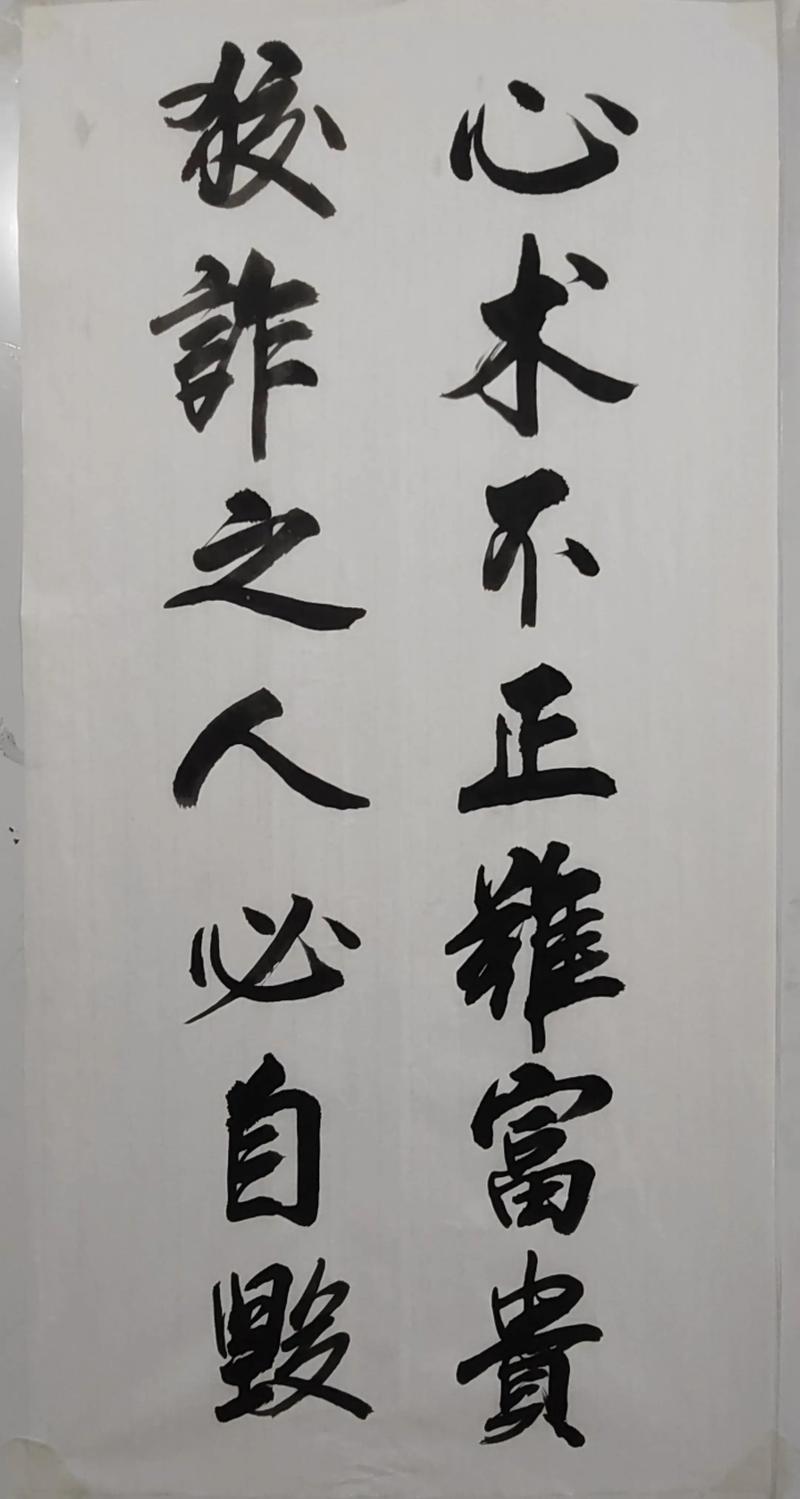 心术不正難富貴
狡詐之人必自毁